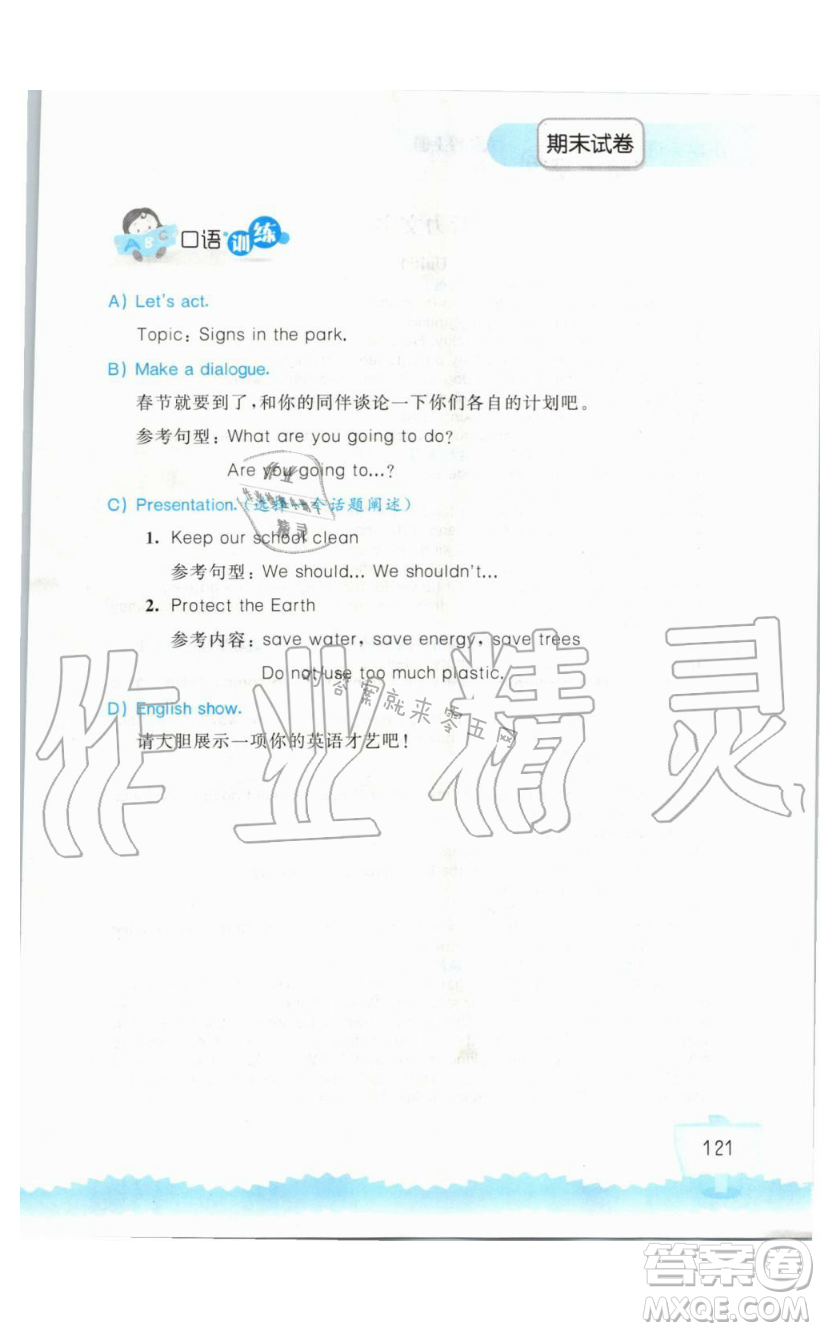 期末试卷
ABC 口语训练
A) Let's act.
Topic: Signs in the park.
B) Make a dialogue.
春节就要到了，和你的同伴谈论一下你们各自的计划吧。
参考句型：What are you going to do?
Are you going to…?
C) Presentation.（选择一个话题阐述）
1. Keep our school clean
参考句型：We should… We shouldn't…
2. Protect the Earth
参考内容：save water, save energy, save trees
Do not use too much plastic.
D) English show.
请大胆展示一项你的英语才艺吧！
作业精灵
对答案就来零五网
121
答案圈
MXQE.COM